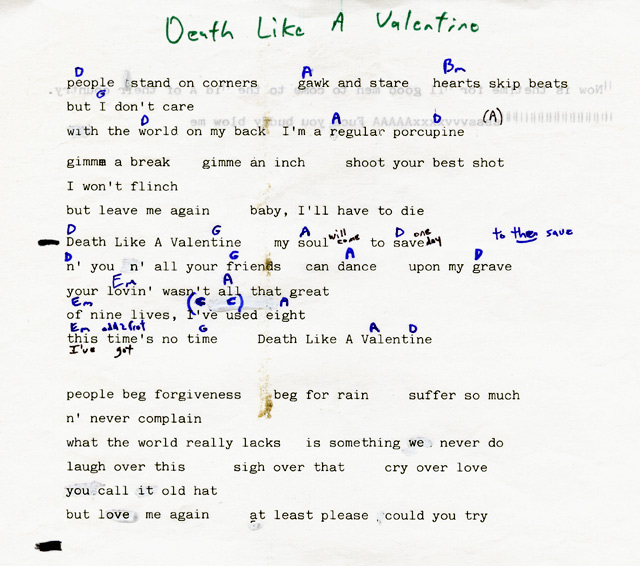 Death Like A Valentine
D A Bm
people stand on corners gawk and stare hearts skip beats
G
but I don't care
D A D (A)
with the world on my back I'm a regular porcupine
gimme a break gimme an inch shoot your best shot
I won't flinch
but leave me again baby, I'll have to die
D G A D
Death Like A Valentine my soul will come to save one day to then save
D G A D
n' you n' all your friends can dance upon my grave
Em A
your lovin' wasn't all that great
Em (G G) A
of nine lives, I've used eight
Em add 2 fret G A D
this time's no time Death Like A Valentine
I've got
people beg forgiveness beg for rain suffer so much
n' never complain
what the world really lacks is something we never do
laugh over this sigh over that cry over love
you call it old hat
but love me again at least please could you try